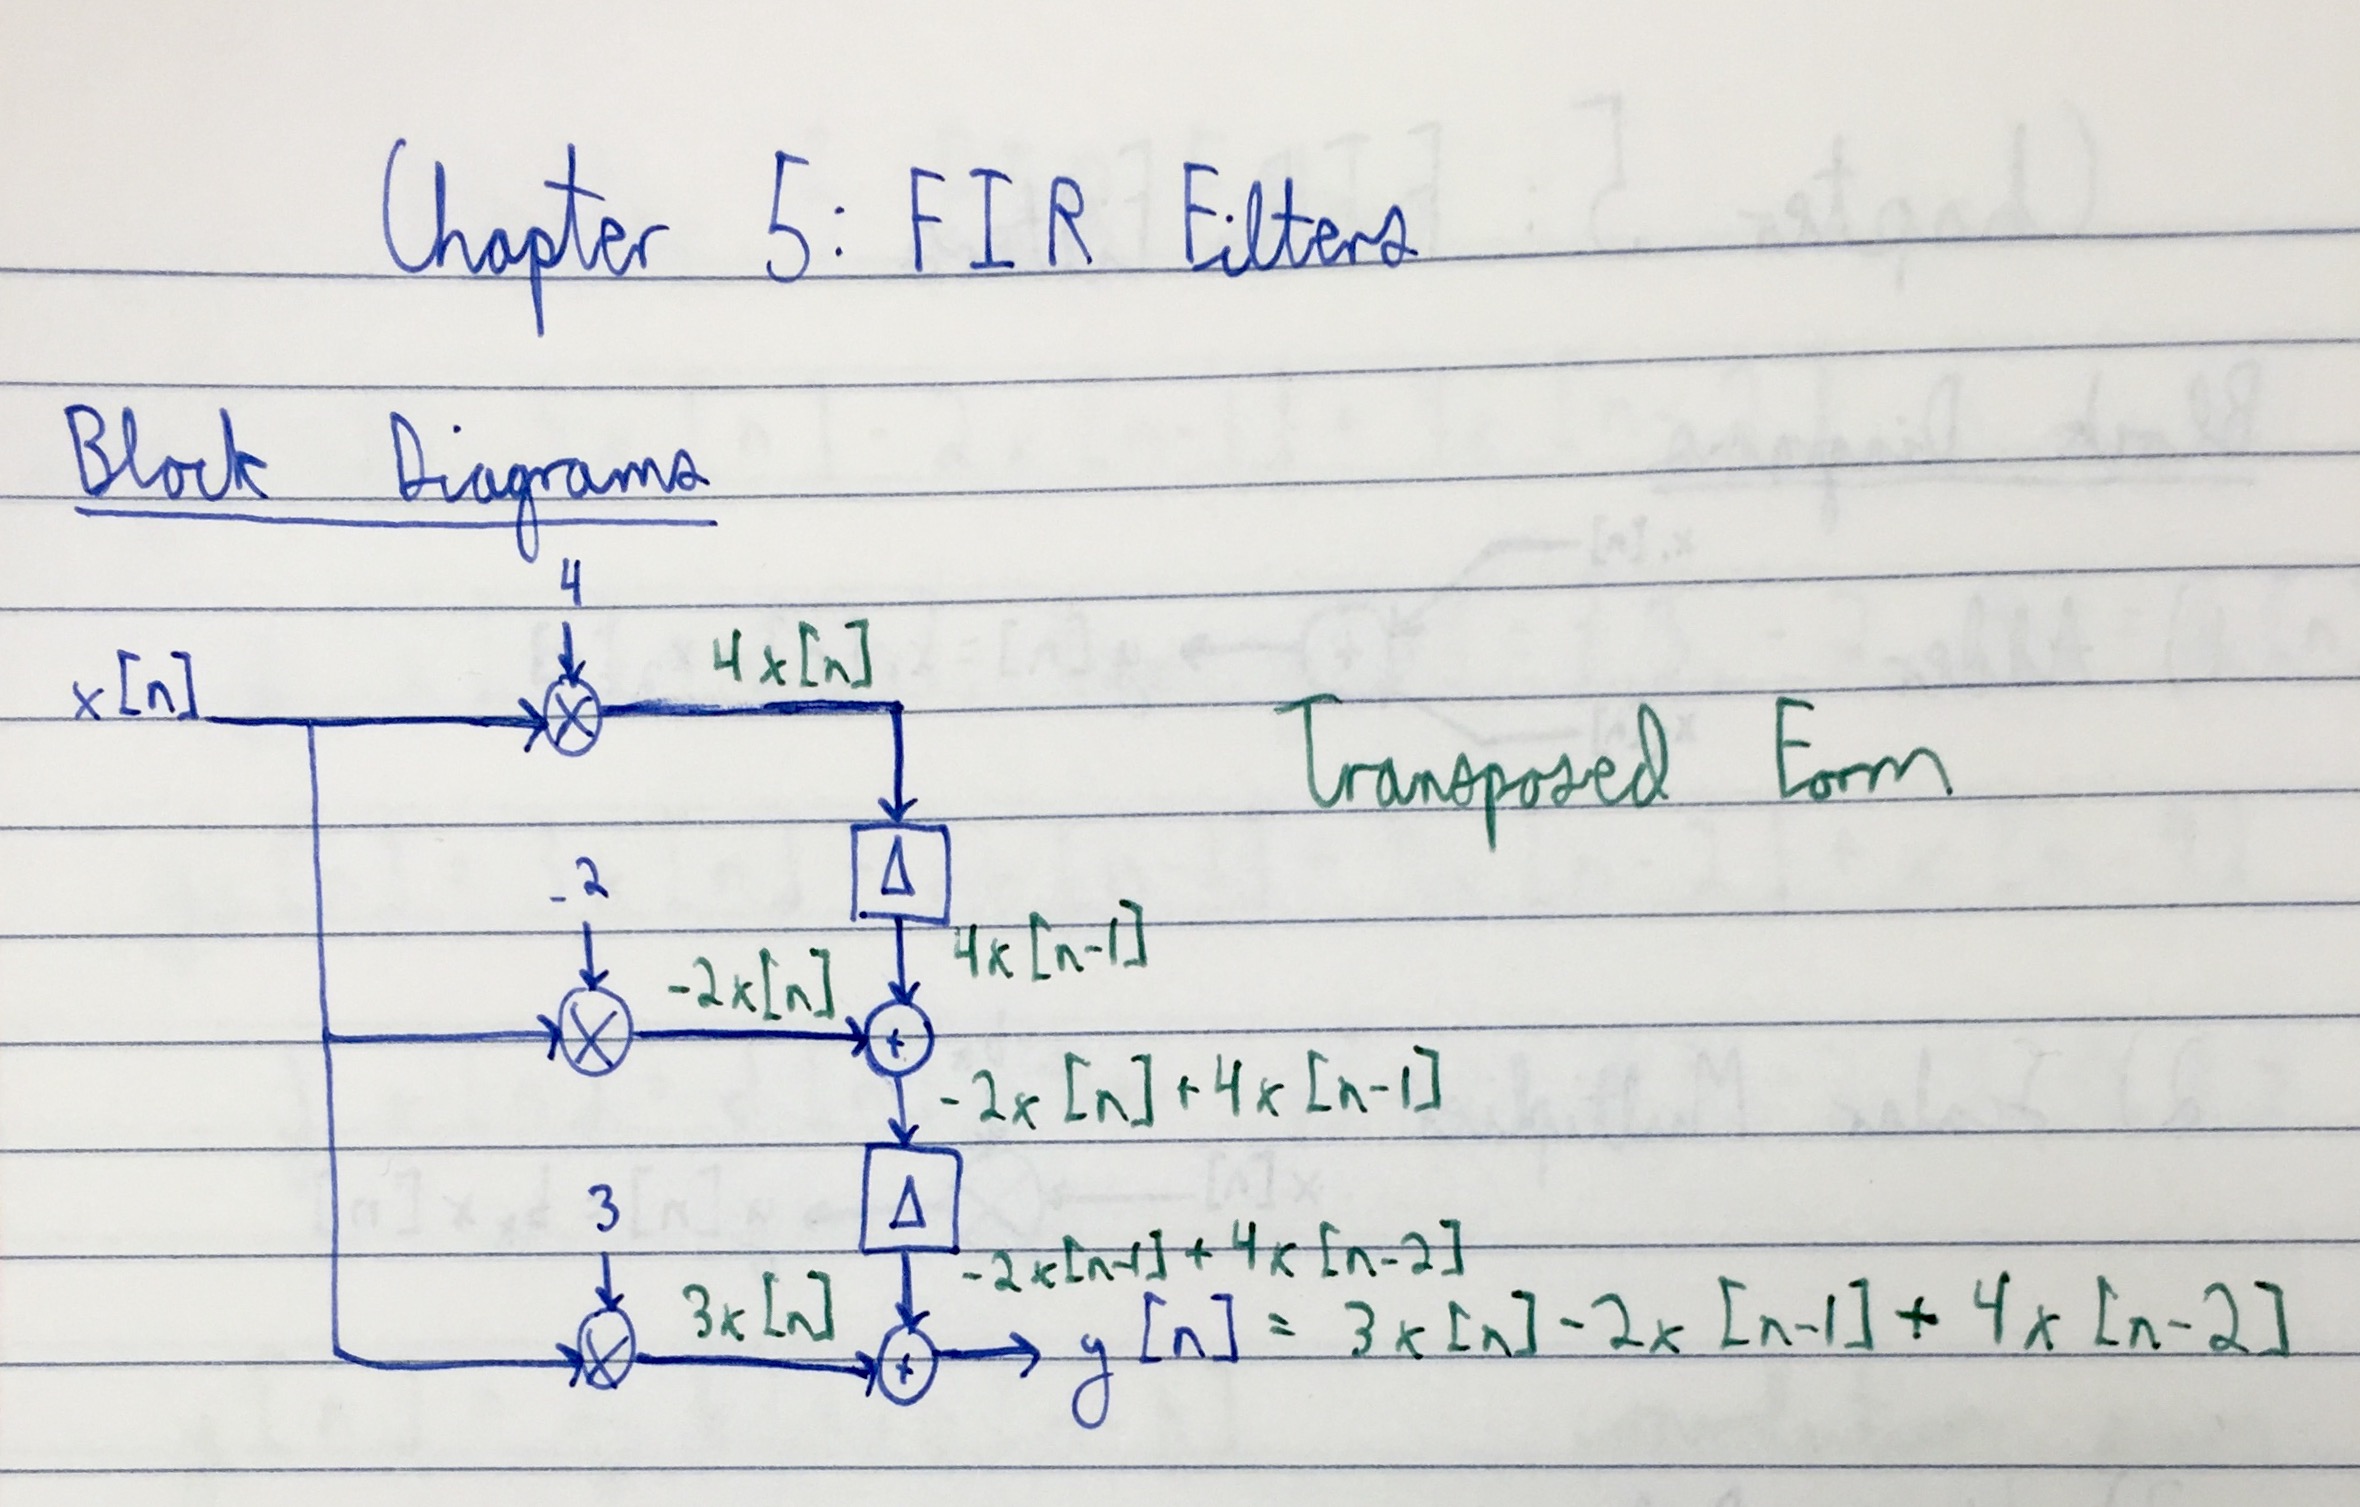 Chapter 5: FIR Filters
Block Diagrams
4
x[n]
4x[n]
Transposed Form
Δ
-2
4x[n-1]
-2x[n]
+
-2x[n]+4x[n-1]
Δ
3
-2x[n-1]+4x[n-2]
3x[n]
+
y[n] = 3x[n]-2x[n-1]+4x[n-2]